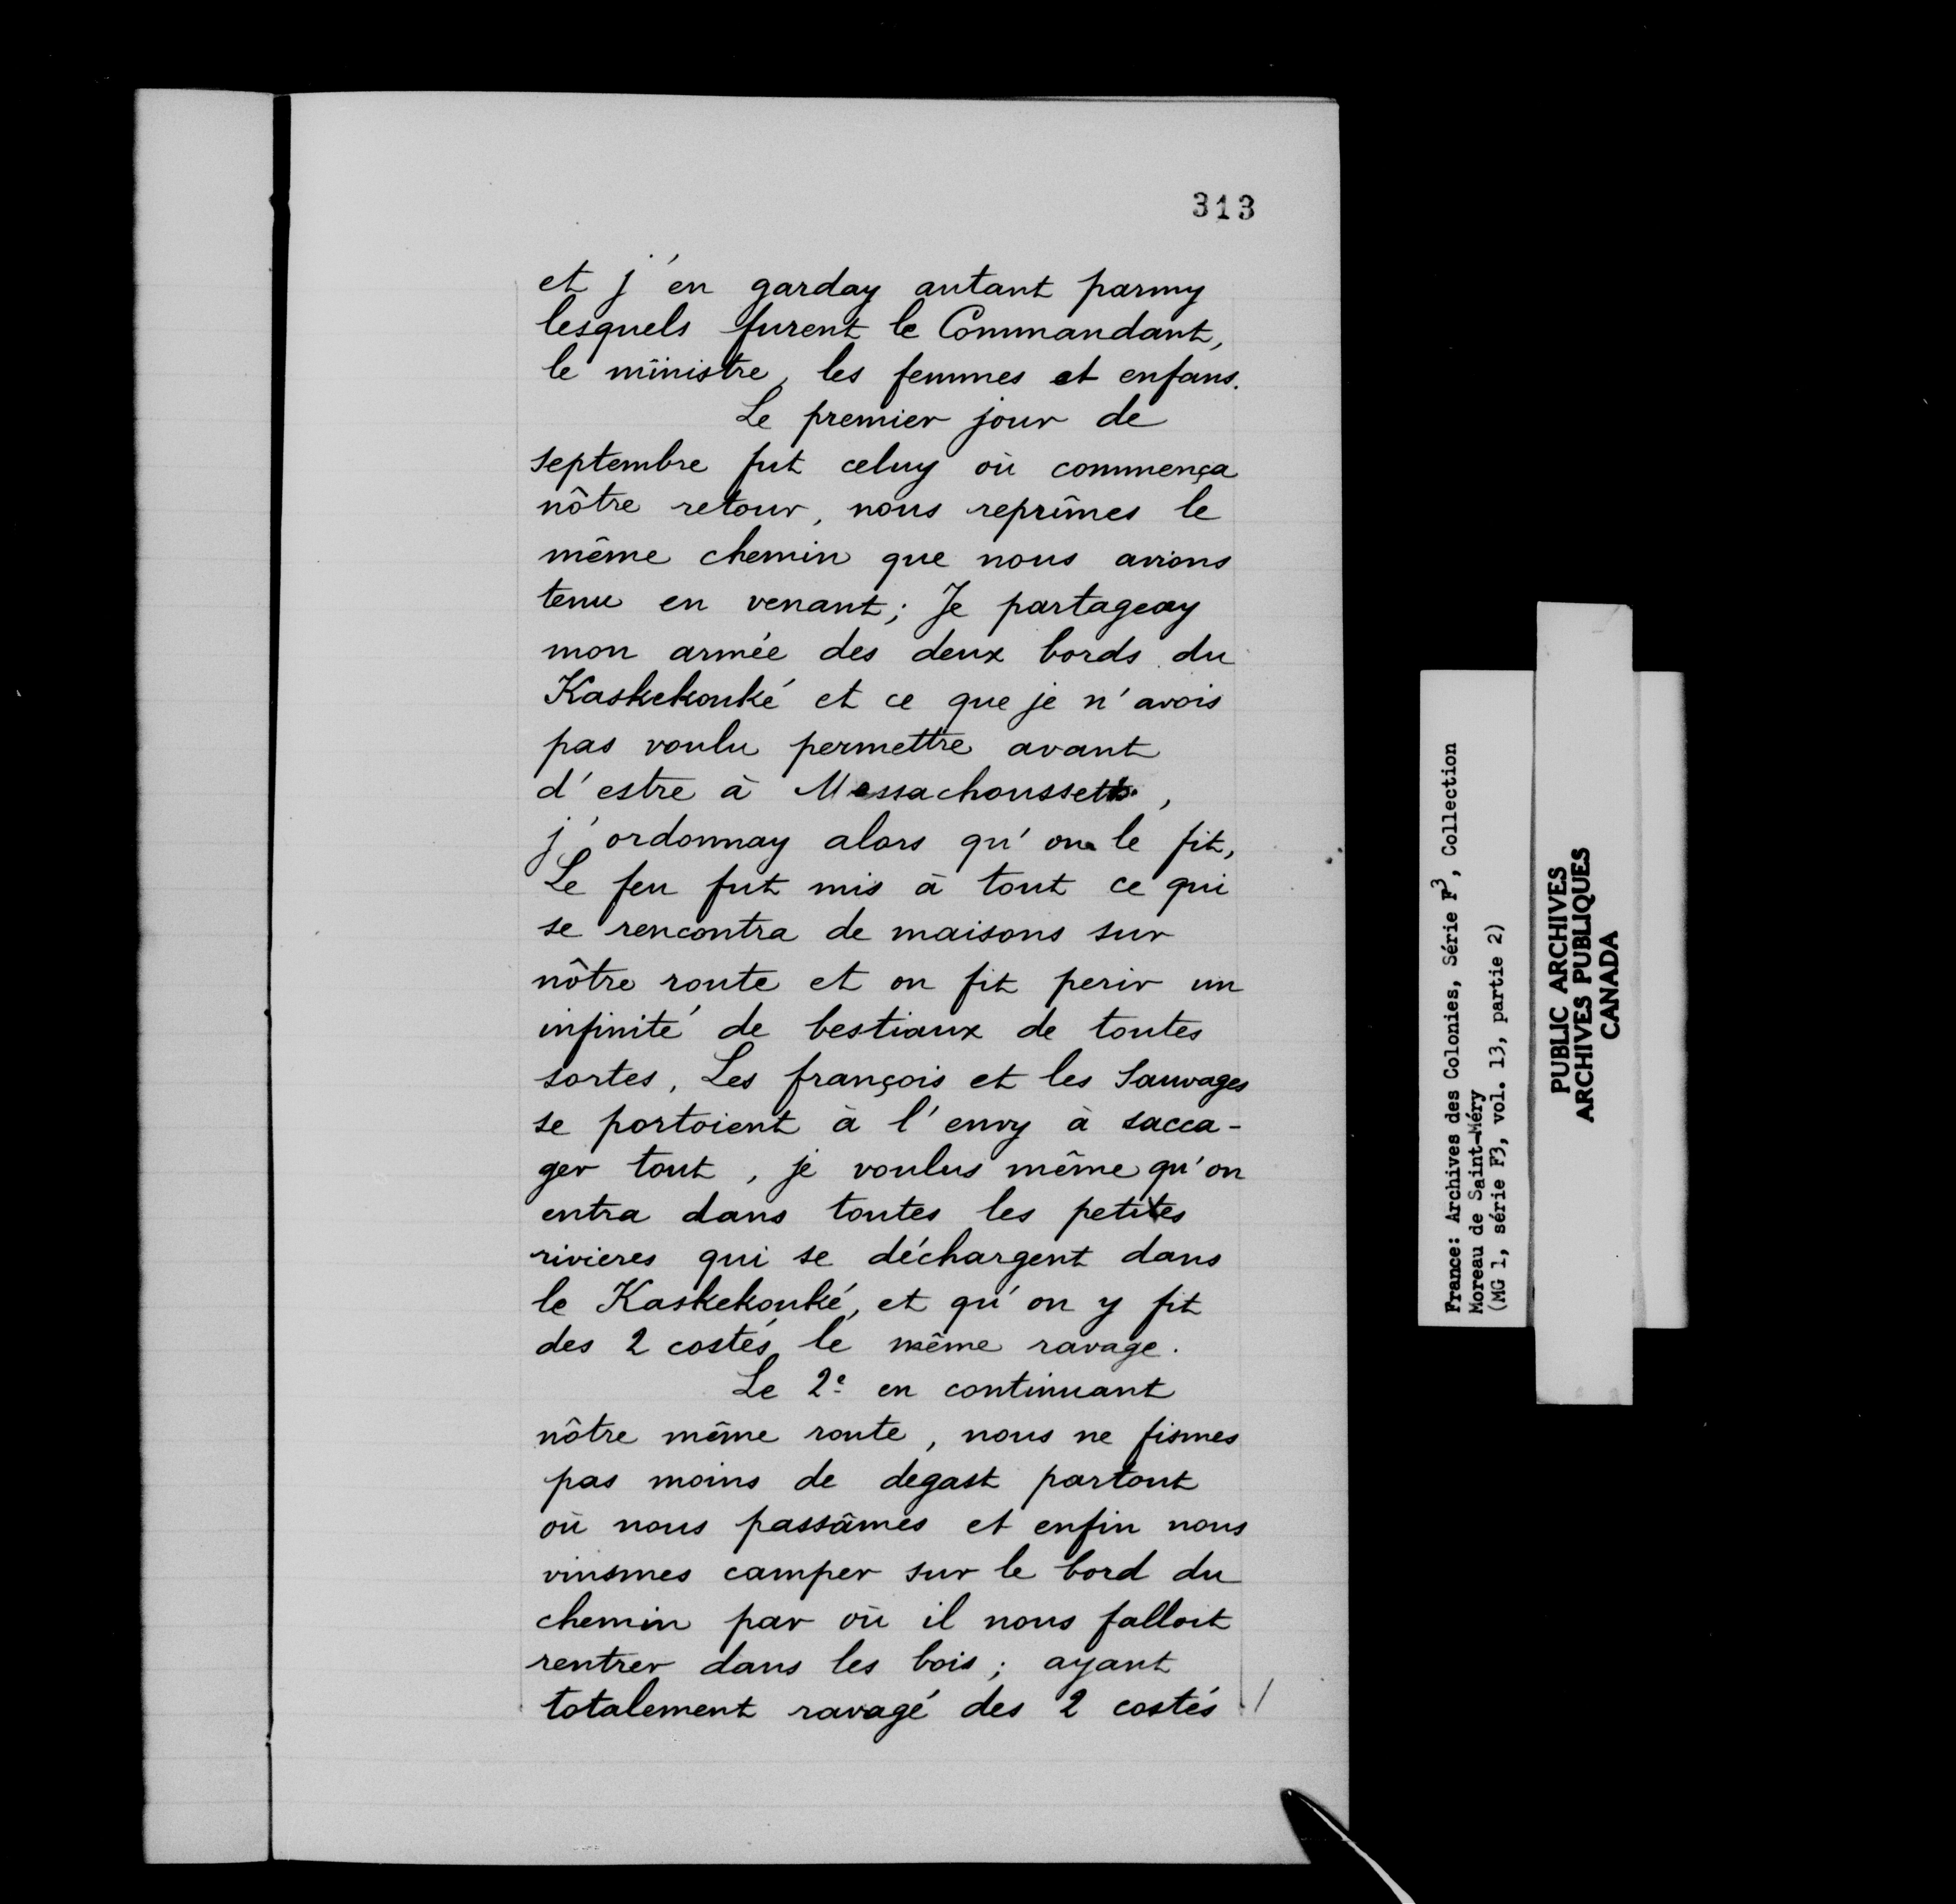 313
et j'en garday autant parmy
lesquels furent le Commandant,
le ministre, les femmes et enfans.
Le premier jour de
septembre fut celuy où commença
nôtre retour, nous reprîmes le
même chemin que nous avions
tenu en venant; Je partageay
mon armée des deux bords du
Kaskekouké et ce que je n'avois
pas voulu permettre avant
d'estre à Messachoussetts,
j'ordonnay alors qu'on le fit,
Le feu fut mis à tout ce qui
se rencontra de maisons sur
nôtre route et on fit perir un
infinité de bestiaux de toutes
sortes, Les françois et les Sauvages
se portoient à l'envy à sacca-
ger tout, je voulus même qu'on
entra dans toutes les petites
rivieres qui se déchargent dans
le Kaskekouké, et qu'on y fit
des 2 costés le même ravage.
Le 2e en continuant
nôtre même route, nous ne fismes
pas moins de degast partout
où nous passâmes et enfin nous
vinsmes camper sur le bord du
chemin par où il nous falloit
rentrer dans les bois; ayant
totalement ravagé des 2 costés /
France: Archives des Colonies, Série F3, Collection
Moreau de Saint-Méry
(MG 1, série F3, vol. 13, partie 2)
PUBLIC ARCHIVES
ARCHIVES PUBLIQUES
CANADA